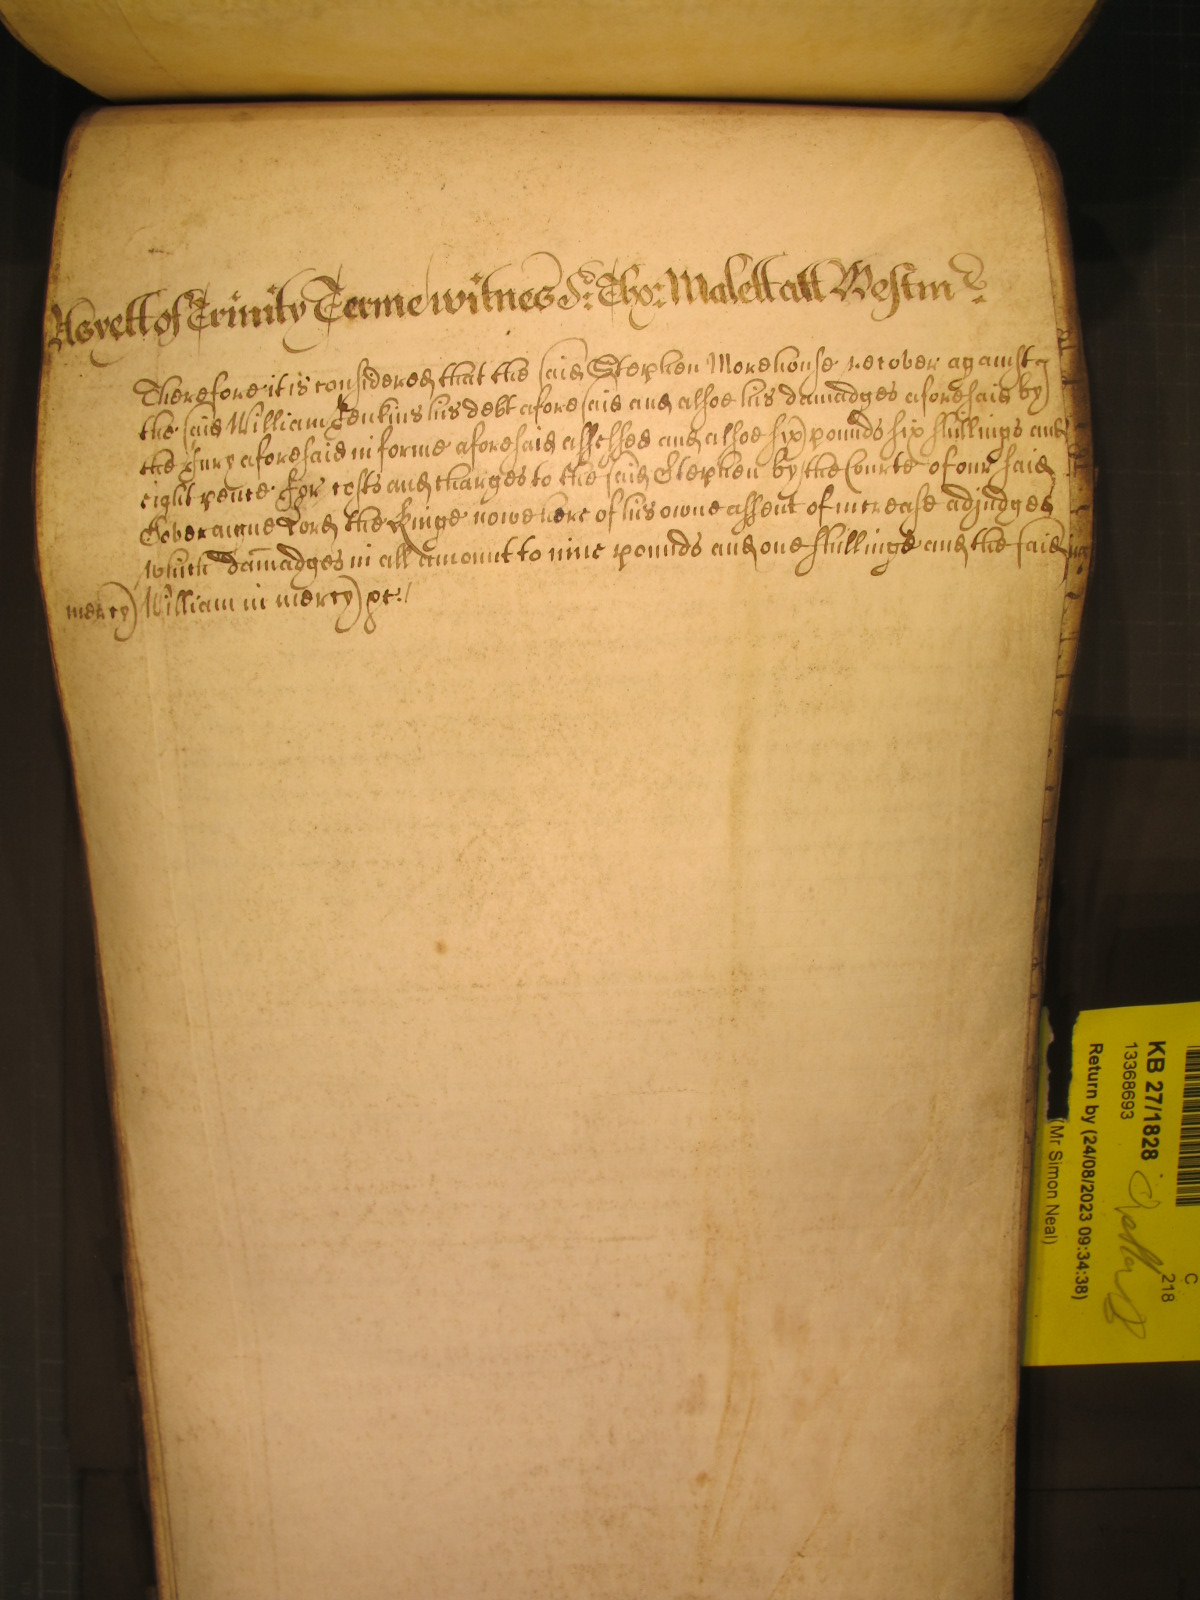 As yett of Trinity Terme witnes Sr: Tho: Malett att Westmr:
Therefore it is considered that the said Stephen Morehouse recover against
the said William Jenkins his debt aforesaid and alsoe his damadges aforesaid by
the Jury aforesaid in forme aforesaid assessed and alsoe six pounds six shillings and
eight pence for costs and charges to the said Stephen by the Courte of our said
Soveraigne Lord the Kinge nowe here of his owne assent of increase adjudged
which damadges in all amount to nine pounds and one shillinge and the said
mercy William in mercy &c:/
KB 27/1828
13368693
Return by (24/08/2023 09:34:38)
(Mr Simon Neal)
C
218